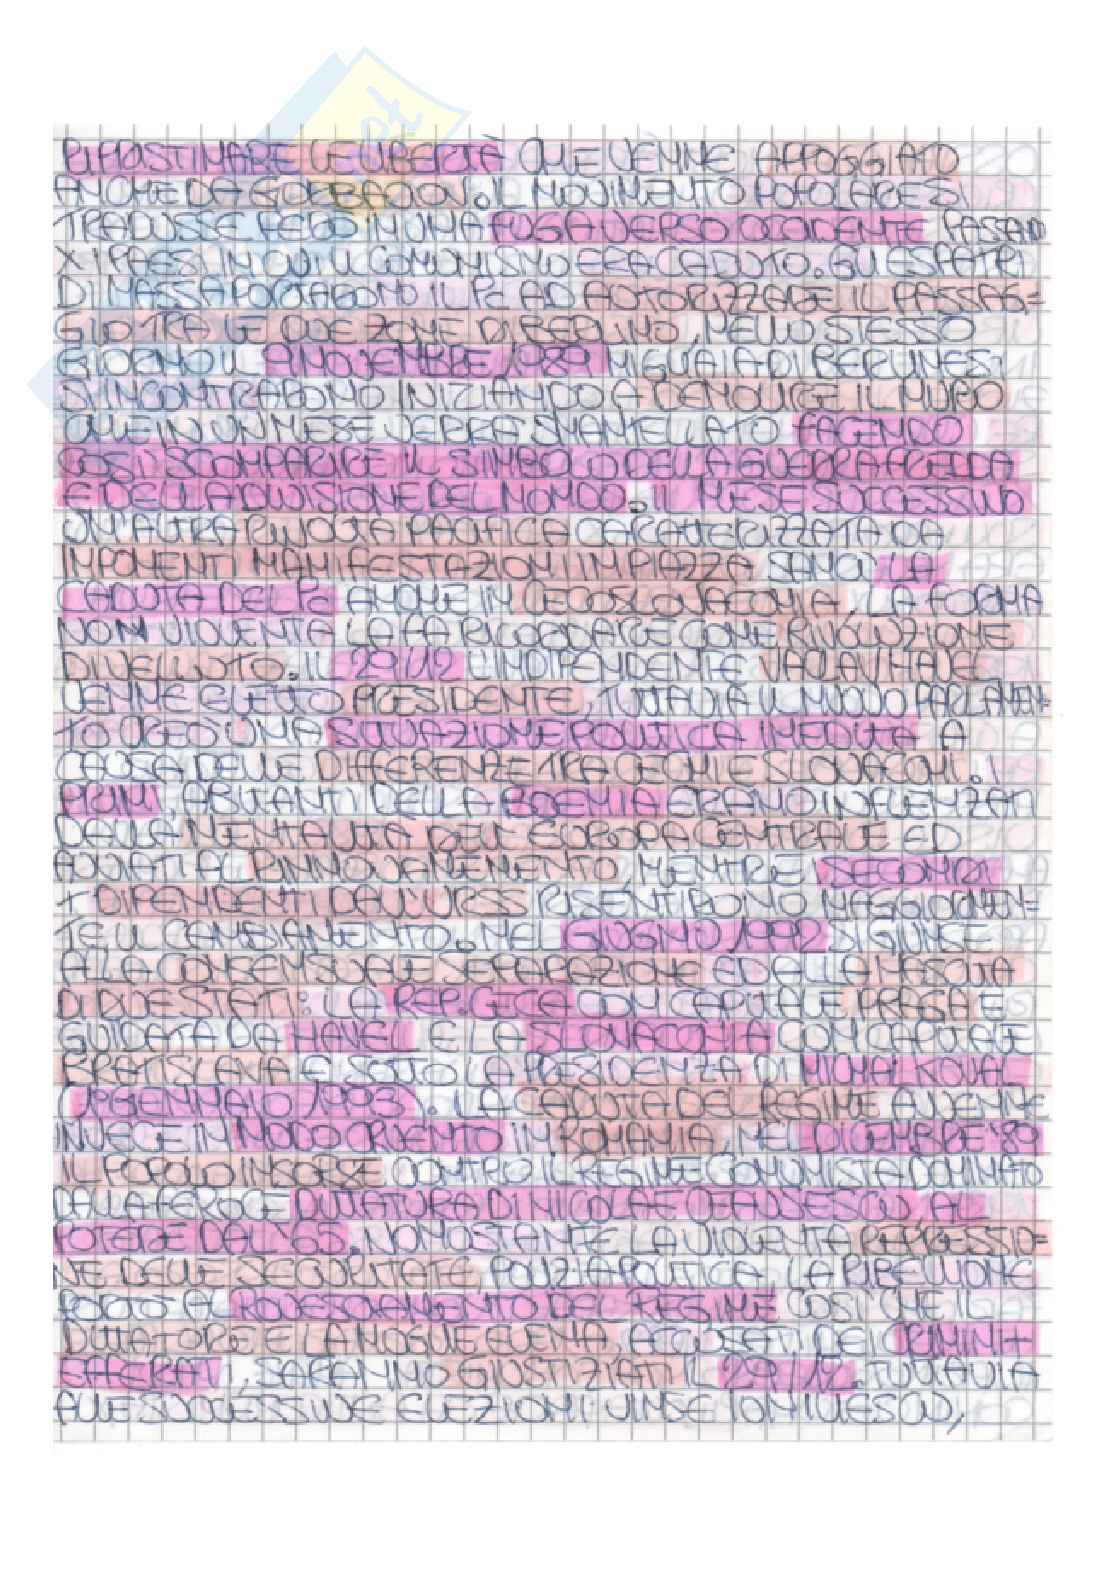 RIPRISTINARE LE LIBERTÀ CHE VENNE APPOGGIATO
ANCHE DA GORBACIOV. IL MOVIMENTO POPOLARE SI
TRADUSSE PERÒ IN UNA FUGA VERSO OCCIDENTE PASSANDO
X I PAESI IN CUI IL COMUNISMO ERA CADUTO. GLI ESPATRI
DI MASSA PORTARONO IL Pc AD AUTORIZZARE IL PASSAG=
GIO TRA LE DUE ZONE DI BERLINO, NELLO STESSO
GIORNO IL 9 NOVEMBRE 1989 MIGLIAIA DI BERLINESI
SI INCONTRARONO INIZIANDO A DEMOLIRE IL MURO
CHE IN UN MESE VERRÀ SMANTELLATO FACENDO
COSÌ SCOMPARIRE IL SIMBOLO DELLA GUERRA FREDDA
E DELLA DIVISIONE DEL MONDO. IL MESE SUCCESSIVO
UN'ALTRA RIVOLTA PACIFICA CARATTERIZZATA DA
IMPONENTI MANIFESTAZIONI IN PIAZZA SANCÌ LA
CADUTA DEL Pc ANCHE IN CECOSLOVACCHIA, LA FORMA
NON VIOLENTA LA FA RICORDARE COME RIVOLUZIONE
DI VELLUTO. IL 29/12 L'INDIPENDENTE VACLAV HAVEL
VENNE ELETTO PRESIDENTE, TUTTAVIA IL NUOVO PARLAMEN=
TO CREÒ UNA SITUAZIONE POLITICA INEDITA A
CAUSA DELLE DIFFERENZE TRA CECHI E SLOVACCHI. I
PRIMI ABITANTI DELLA BOEMIA ERANO INFLUENZATI
DALLA MENTALITÀ DELL'EUROPA CENTRALE ED
AVVIATI AL RINNOVAMENTO MENTRE I SECONDI
+ DIPENDENTI DALL'URSS RISENTIRONO MAGGIORMEN=
TE IL CAMBIAMENTO. NEL GIUGNO 1992 SI GIUNSE
ALLA CONSENSUALE SEPARAZIONE ED ALLA NASCITA
DI DUE STATI: LA REP. CECA CON CAPITALE PRAGA E
GUIDATA DA HAVEL E LA SLOVACCHIA CON CAPITALE
BRATISLAVA E SOTTO LA PRESIDENZA DI MICHAL KOVAC
(1° GENNAIO 1993). LA CADUTA DEL REGIME AVVENNE
INVECE IN MODO CRUENTO IN ROMANIA, NEL DICEMBRE '89
IL POPOLO INSORSE CONTRO IL REGIME COMUNISTA DOMINATO
DALLA FEROCE DITTATURA DI NICOLAE CEAUSESCU, AL
POTERE DAL '65. NONOSTANTE LA VIOLENTA REPRESSIO=
NE DELLE SECURITATE, POLIZIA POLITICA, LA RIBELLIONE
PORTÒ AL ROVESCIAMENTO DEL REGIME COSÌ CHE IL
DITTATORE E LA MOGLIE ELENA, ACCUSATI DEI CRIMINI +
EFFERATI, SARANNO GIUSTIZIATI IL 29/12. TUTTAVIA
ALLE SUCCESSIVE ELEZIONI VINSE ION ILIESCU,